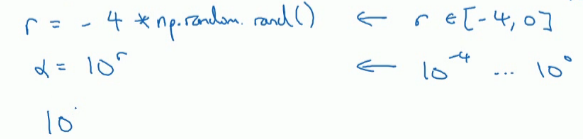 r = -4 * np.random.rand() ← r ∈ [-4, 0]
α = 10^r ← 10^-4 ... 10^0
10